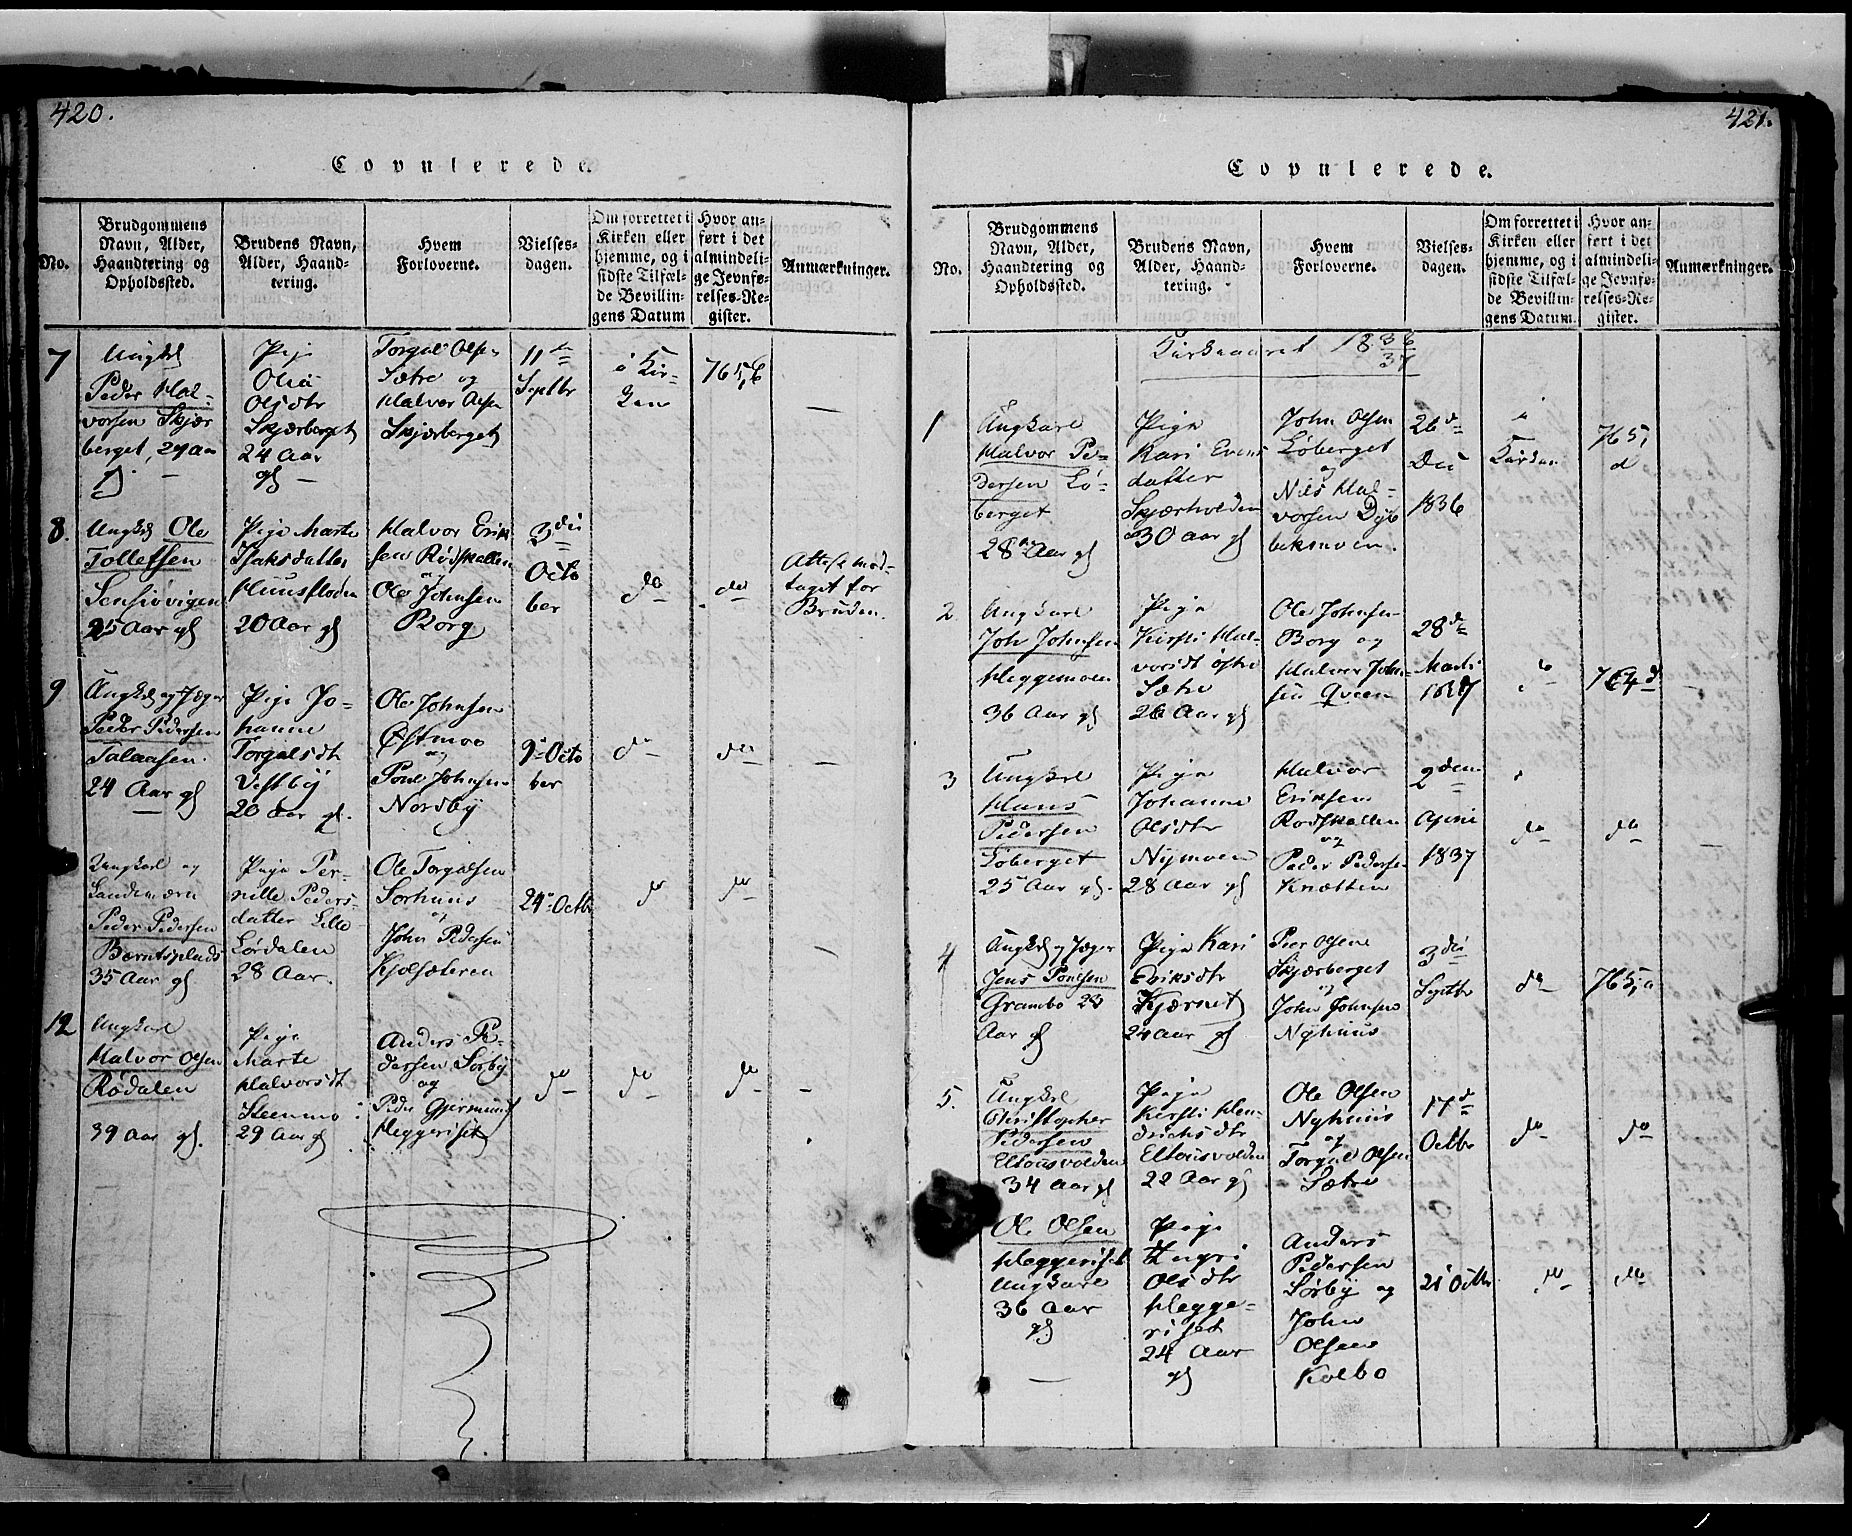 420.
Copulerede.
No.
Brudgommens
Navn, Alder,
Haandtering og
Opholdssted.
Brudens Navn,
Alder, Haand-
tering.
Hvem
Forloverne.
Vielses-
dagen.
Om forrettet i
Kirken eller
hjemme, og i
sidste Tilfæl-
de Bevillin-
gens Datum
Hvor an-
ført i det
almindeli-
ge Jevnfø-
relses-Re-
gister.
Anmærkninger.
7
Ungkl
Peder Hal-
vorsen Skjær
berget, 29 Aar
gl —
Pige
Olia
Olsdtr
Skjærberget
24 Aar
gl —
Torgal Olsen
Sætre og
Halvor Olsen
Skjærberget
11te
Septbr
i Kir-
ken
765,6
—
8.
Ungkl Ole
Tollefsen
Sensiøvigen
25 Aar gl
Pige Marte
Isaksdatter
Huusfloden
20 Aar gl
Halvor Erik
sen Rødskallen
og
Ole Johnsen
Borg
3die
Octo
ber
do
do
Attest mod-
taget for
Bruden.
9.
Ungkl og Jæger
Peder Pedersen
Talaasen.
24 Aar gl
—
Pige Jo-
hanne
Torgalsdt
Vestby
20 Aar gl.
Ole Johnsen
Østmoe
og
Poul Johnsen
Nordby
9 Octo
ber
do
do
—
Ungkarl og
Landeværn
Peder Pedersen
Berntsplads
35 Aar gl
Pige Per-
nille Peders-
datter Lille-
Lørdalen
28 Aar.
Ole Torgalsen
Sorhuus
og
John Pedersen
Kjølsæteren
24 Octbr
do
do
—
12
Ungkarl
Halvor Olsen
Rødalen
39 Aar gl.
Pige
Marte
Halvorsdt
Steenmo
29 Aar gl
Anders Pe-
dersen Sørby
og
Peder Gjermunds
Heggeriset
do
do
do
—
421.
Copulerede.
No.
Brudgommens
Navn, Alder,
Haandtering og
Opholdssted.
Brudens Navn,
Alder, Haand-
tering.
Hvem
Forloverne.
Vielses-
dagen.
Om forrettet i
Kirken eller
hjemme, og i
sidste Tilfæl-
de Bevillin-
gens Datum.
Hvor an-
ført i det
almindeli-
ge Jevnfø-
relses-Re-
gister.
Anmærkninger.
Kirkeaaret 1836/37
1
Ungkarl
Halvor Pe-
dersen Lø-
berget
28 Aar gl
Pige
Kari Evens
datter
Skjærholden
30 aar gl
John Olsen
Løberget
og
Nils Hal-
vorsen Dyb
bekmoen.
26de
Dec
1836
i
Kirken
765,
d
2.
Ungkarl
Joh Johnsen
Heggemoen
36 Aar gl
Pige
Kirsti Hal-
vorsdt østre
Sætre
26 Aar gl
Ole Johnsen
Borg og
Halvor John-
sen Qveen
28de
Marti
1837
do
764 d
—
3
Ungkarl
Hans
Pedersen
Løberget
25 Aar gl.
Pige
Johanne
Olsdtr
Nymoen
28 Aar gl
Halvor
Eriksen
Rødskallen
og
Peder Pederse
Knætten
2den
April
1837
do
do
—
4
Ungkl og Jæger
Jens Poulsen
Grambo 28
Aar gl
Pige Kari
Eriksdtr
Kjærnet
24 aar gl
Peer Olsen
Skjærberget
og
John Johnsen
Nyhuus
3die
Septbr
do
765,a
5.
Ungkarl
Christopher
Pedersen
Eltousvolden
34 Aar gl
Pige
Kirsti Hen-
drichsdtr
Eltousvolden
22 Aar gl
Ole Olsen
Nyhuus
og
Torgal Olsen
Sætre
17de
Octbr
do
do
Ole Olsen
Heggeriset
Ungkarl
36 Aar
gl
—
Pige
Ingri
Olsdtr
Hegge-
riset
24 Aar
gl
Anders
Pedersen
Sørby og
John
Olsen
Kolbo
21 Octbr
do
do